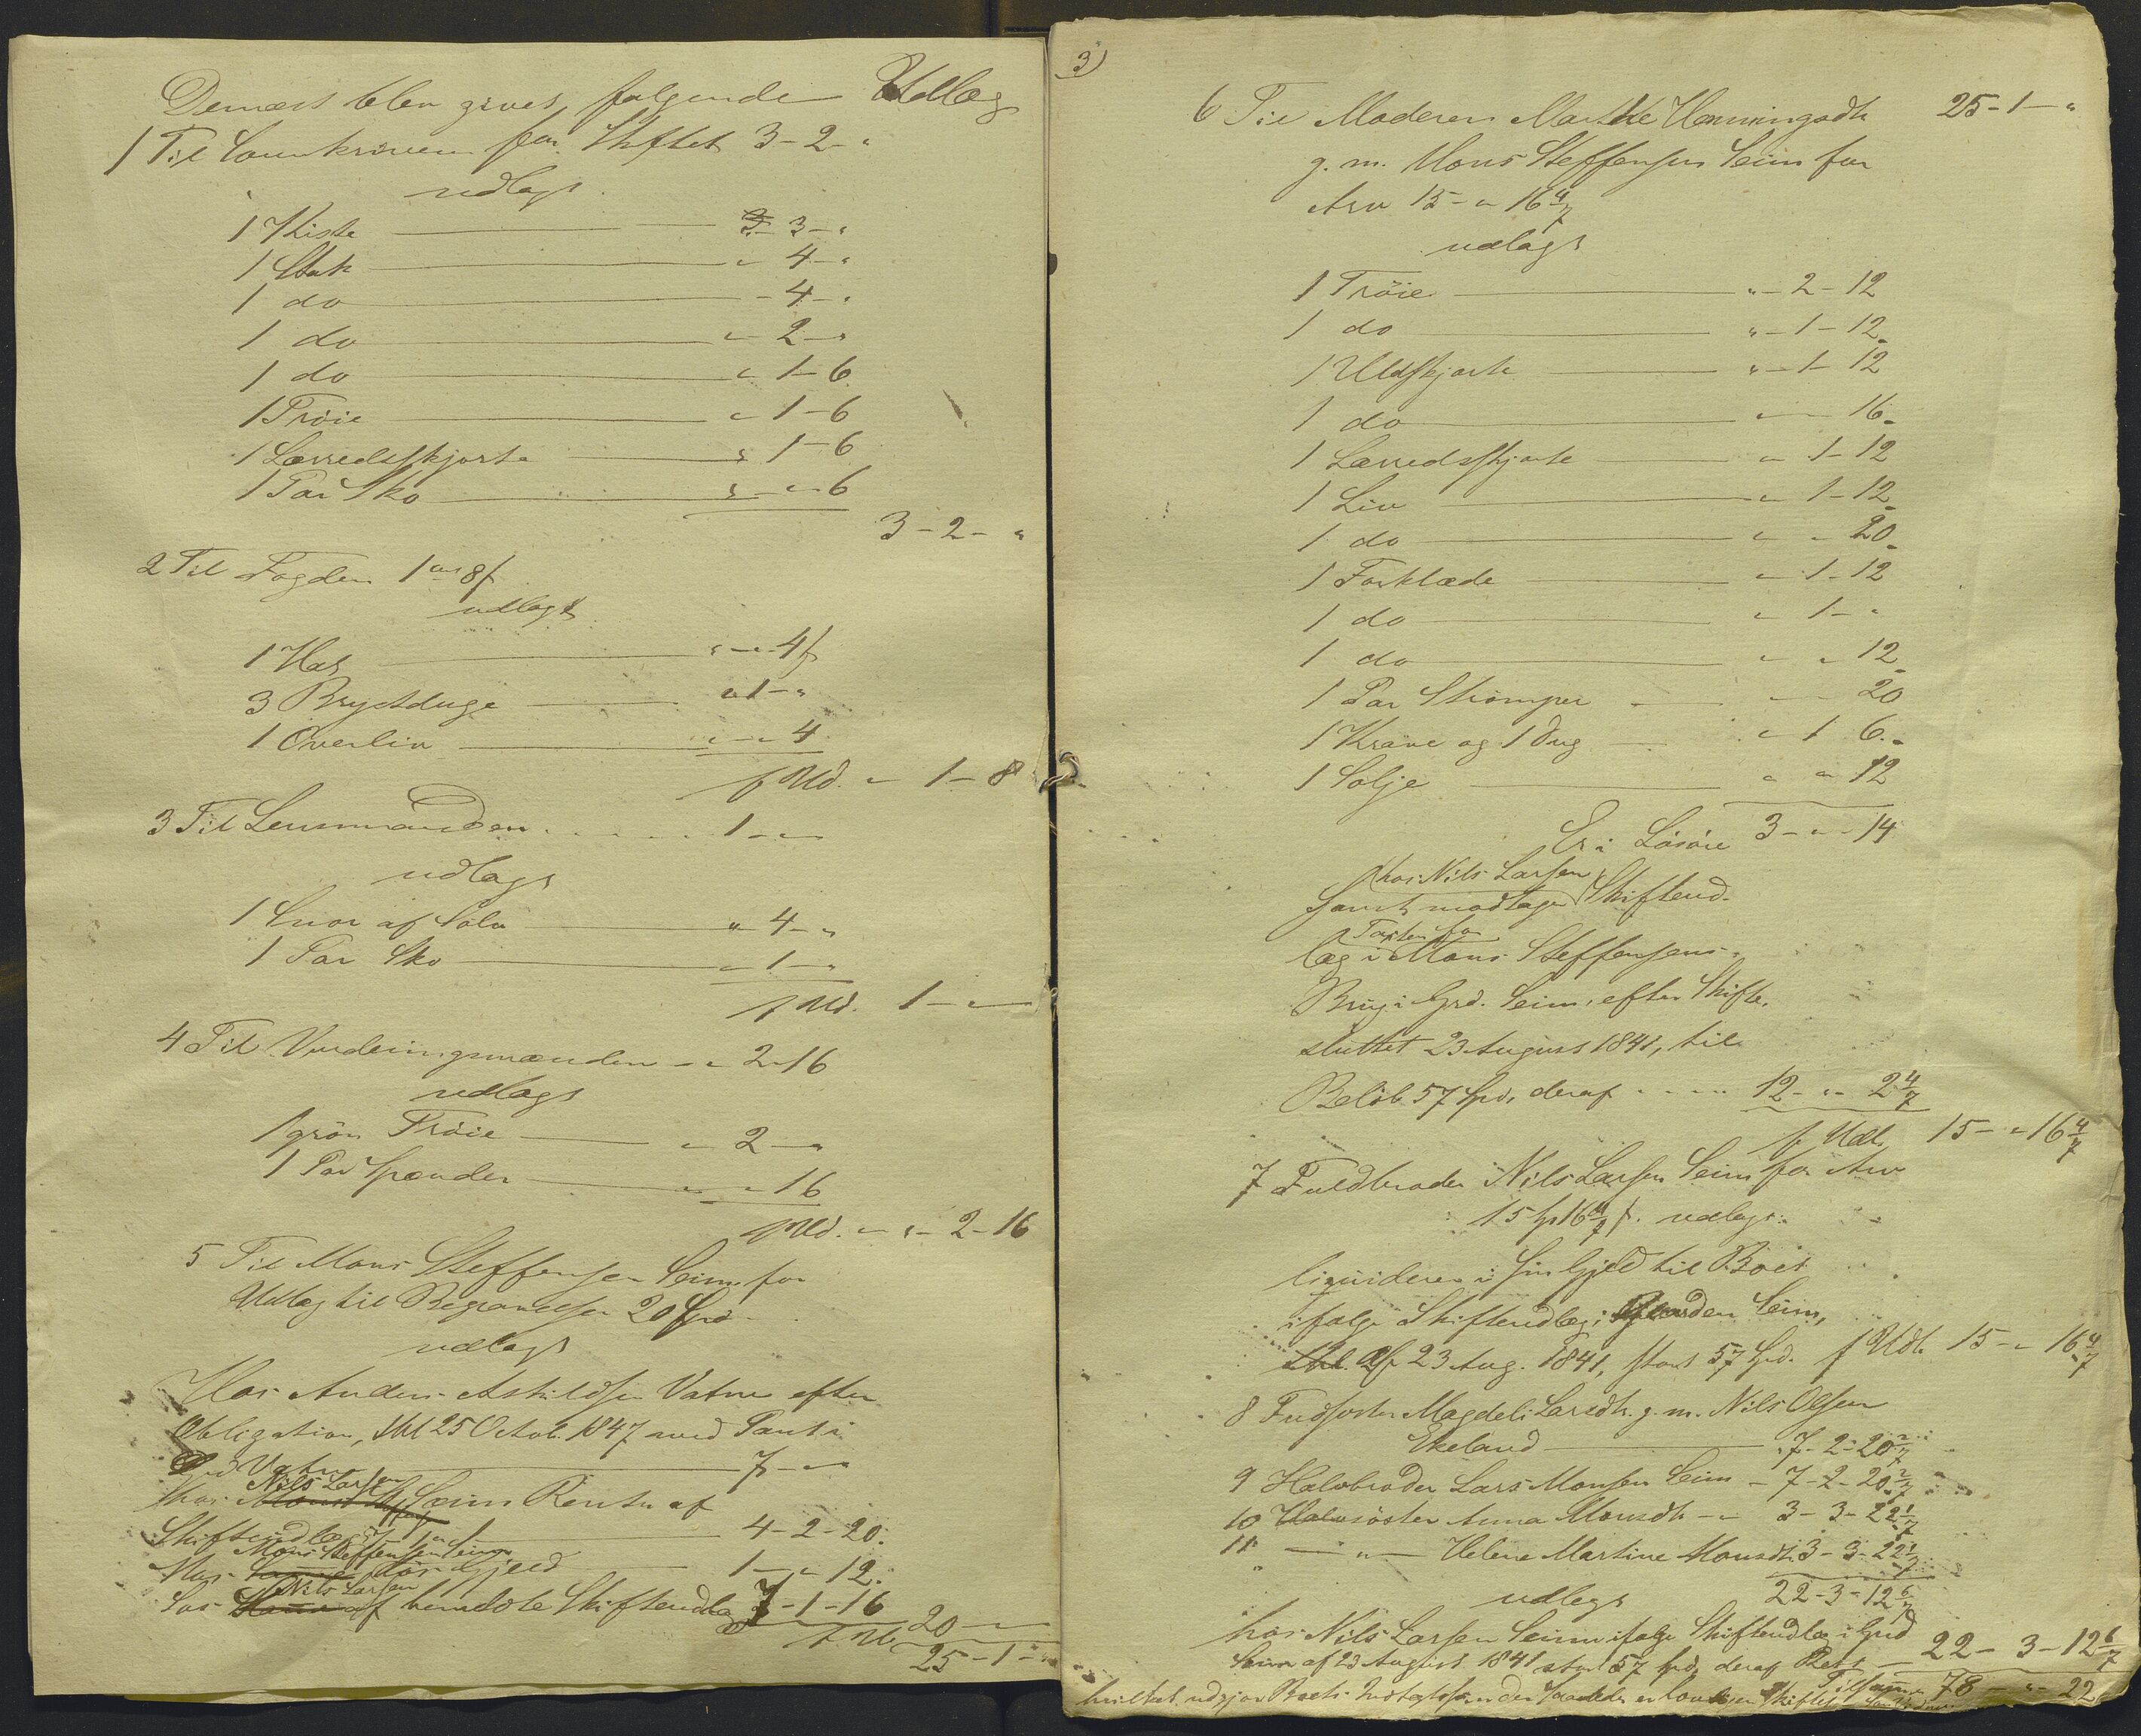 Dernæst blev givet følgende Udlæg
1 Til Sorenskriveren for Skiftet 3-2-"
udlagt
1 Kiste 3-"
1 Stak " 4-"
1 do - 4-"
1 do " 2-"
1 do " 1-6
1 Trøie " 1-6
1 Lærredsskjorte " 1-6
1 Par Sko " " 6
3-2-"
2 Til Fogden 1 ort 8 s
udlagt
1 Hat " " 4 s
3 Brystduge " 1-"
1 Overliv " " 4
f Ud. " 1-8
3 Til Lensmanden 1-"
udlagt
1 Snor af Sølv " 4-"
1 Par Sko " 1-"
f Ud. 1-"
4 Til Vurderingsmændene " 2-16
udlagt
1 grøn Trøie " 2-"
1 Par Spænder " " 16
f Ud. " " 2-16
5 Til Mons Steffensen Seim for
Udlæg til Begravelsen 20 Spd.
udlagt
Hos Anders Askildsen Vatne efter
Obligation, thl 25 Octob. 1847 med Pant i
Grd Vatne 7-"
hos Nils Larsen Seim Rente af
Skifteudlæg 4-2-20
Hos Mons Steffensen Seim Gjeld 1-"-12
hos Nils Larsen af bemeldte Skifteudlæg 7-1-16
f Ud. 20-"
25-1-"
3)
6 Til Moderen Marthe Henningsdtr 25-1-"
g. m. Mons Steffensen Seim for
Arv 15-" 16 4/7
udlagt
1 Trøie " 2-12
1 do " 1-12
1 Uldskjorte " 1-12
1 do " 16
1 Lærredsskjorte " 1-12
1 Liv " 1-12
1 do " " 20
1 Forklæde " 1-12
1 do " 1-"
1 do " " 12
1 Par Strømper " 20
1 Krave og 1 Dug " 1 6
1 Sølje " " 12
Er i Løsøre 3-"-14
hos Nils Larsen
samt modtager Skifteud-
læg i Mons Steffensens
Brug i Grd. Seim, efter Skifte,
sluttet 23 August 1841, til
Beløb 57 Spd, deraf 12-" 2 4/7
f Udl. 15-" 16 4/7
7 Fuldbroder Nils Larsen Seim for Arv
15 sp 16 4/7 s. udlagt
liqviderer i sin Gjeld til Boet
ifølge Skifteudlæg i Gaarden Seim,
af 23 Aug. 1841, stort 57 Spd. f Udl. 15-" 16 4/7
8 Fuldsøster Magdeli Larsdtr. g. m. Nils Olsen
Ekeland 7-2-20 2/7
9 Halvbroder Lars Monsen Seim - 7-2-20 2/7
10 Halvsøster Anna Monsdtr - 3-3-22 1/7
11 - " - Helene Martine Monsdtr 3-3-22 1/7
udlagt 22-3-12 6/7
hos Nils Larsen Seim ifølge Skifteudlæg i Grd
Seim af 23 August 1841 stort 57 Spd, deraf Rest 22-3-12 6/7
Tilsammen 78-"-22
hvilket udgjør Boets